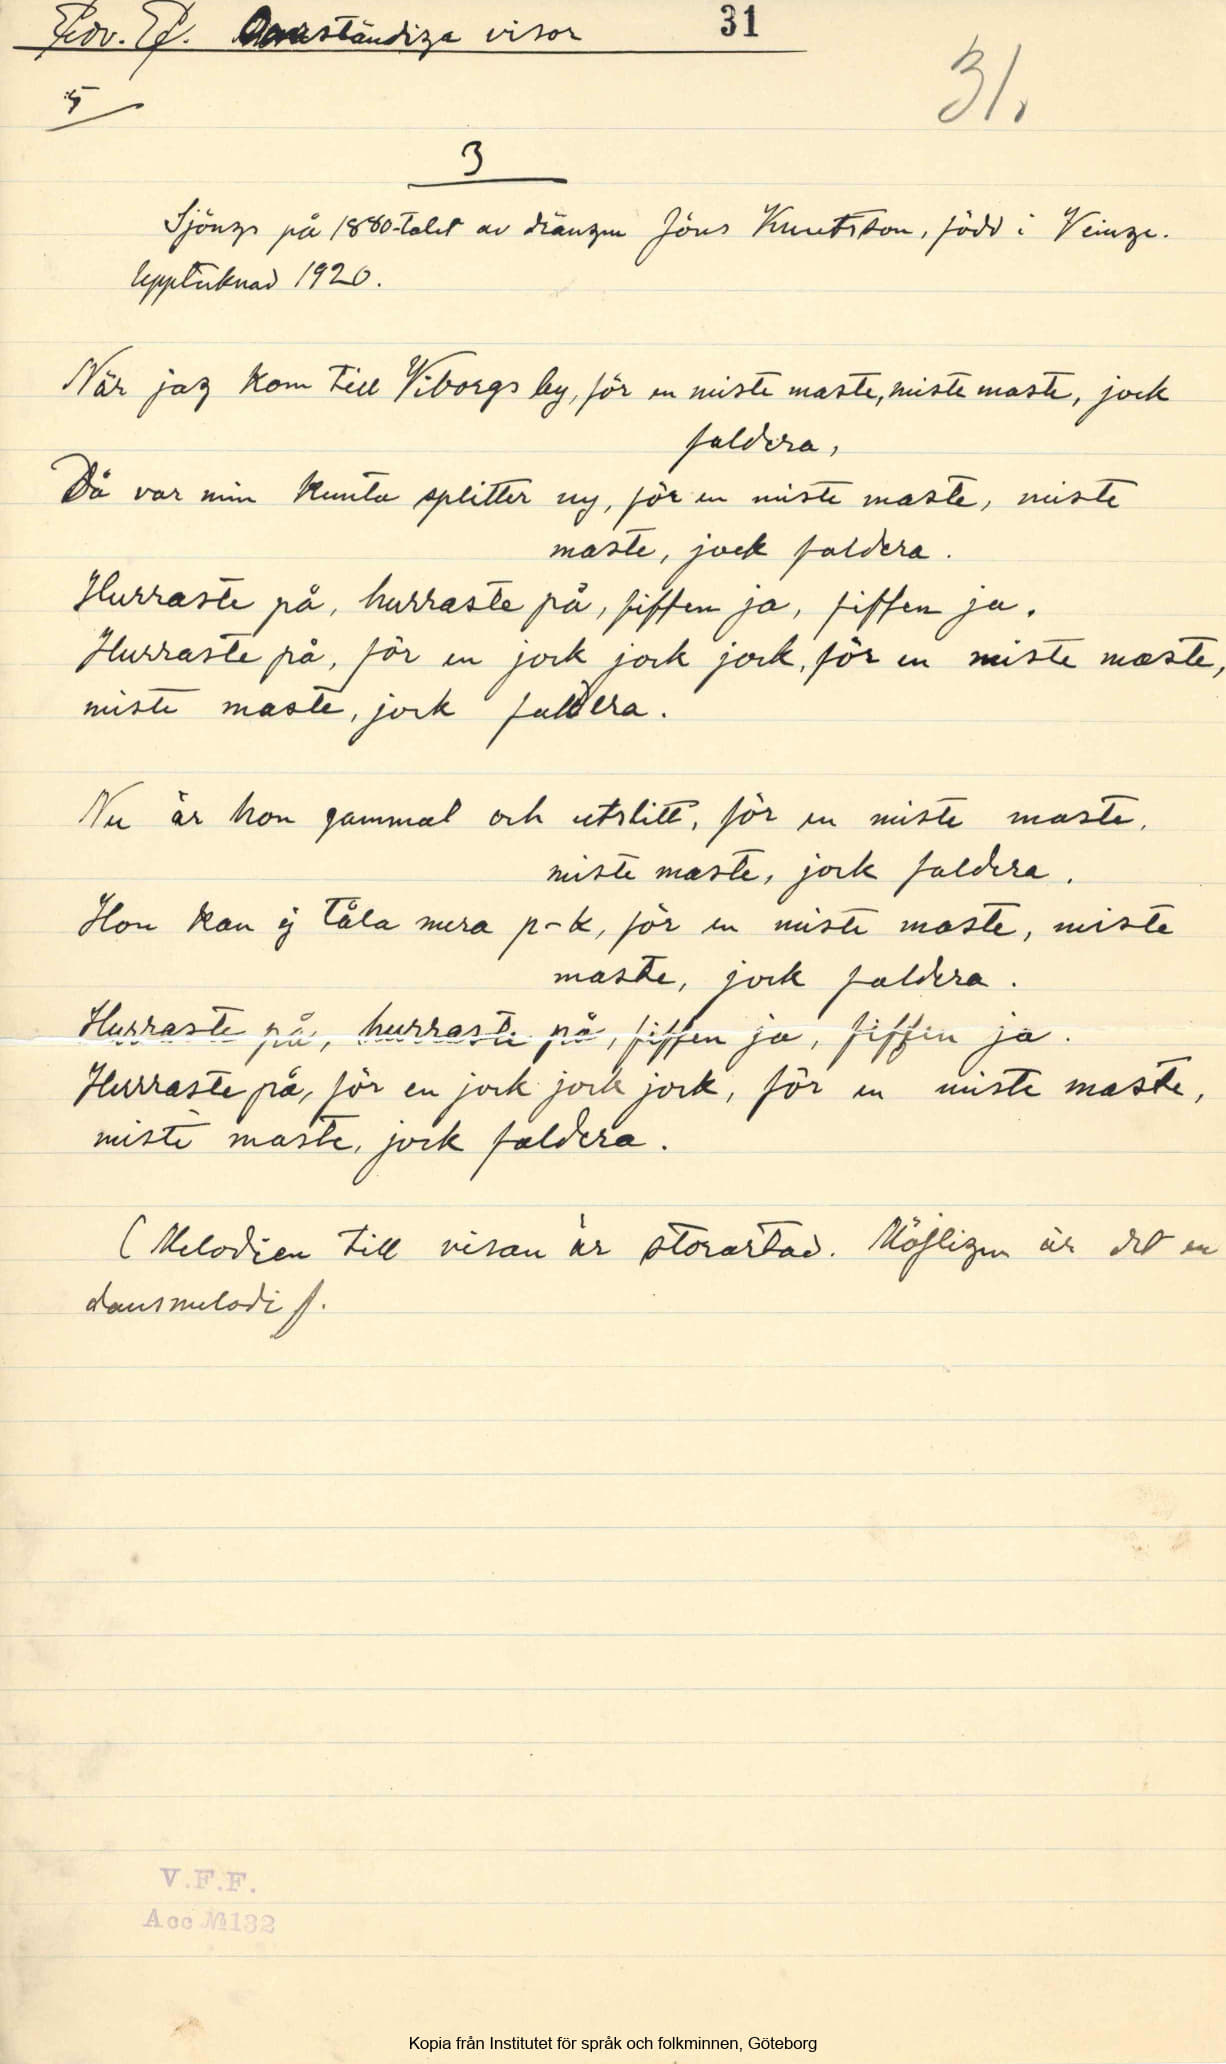 Edv. P. Oanständiga visor 31
31.
5
3
Sjöngs på 1880-talet av drängen Jöns Knutsson, född i Veinge.
Upptecknad 1920.
När jag kom till Viborgs by, för en miste maste, miste maste, jock
faldera,
Då var min kunta splitter ny, för en miste maste, miste
maste, jock faldera.
Hurraste på, hurraste på, fiffen ja, fiffen ja.
Hurraste på, för en jock jock jock, för en miste maste,
miste maste, jock faldera.
Nu är hon gammal och utslitt, för en miste maste,
miste maste, jock faldera.
Hon kan ej tåla mera p-k, för en miste maste, miste
maste, jock faldera.
Hurraste på, hurraste på, fiffen ja, fiffen ja.
Hurraste på, för en jock jock jock, för en miste maste,
miste maste, jock faldera.
(Melodien till visan är storartad. Möjligen är det en
dansmelodi).
V.F.F.
Acc № 132
Kopia från Institutet för språk och folkminnen, Göteborg